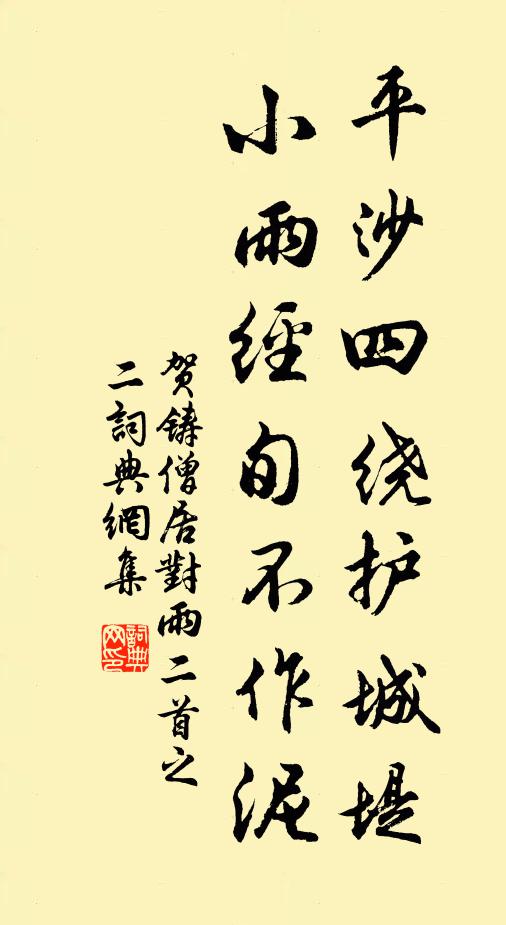 平沙四绕护城堤
小雨經旬不作泥
贺鑄僧居對雨二首之
二詞典網集
詞典网印